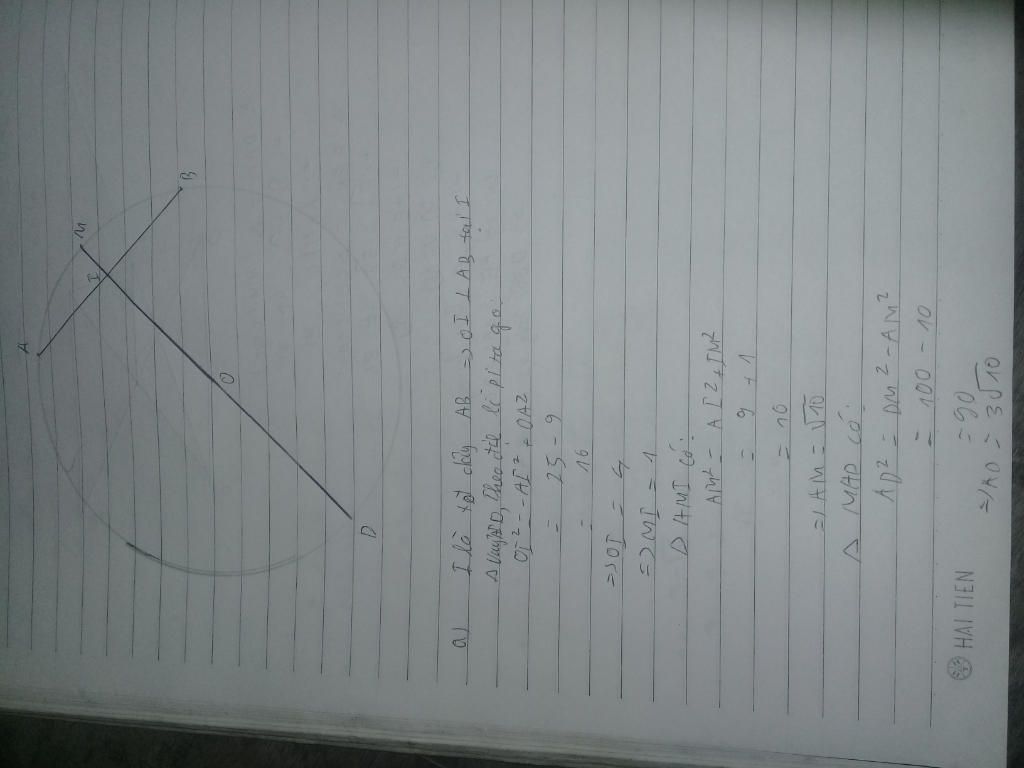 A
M
B
I
O
D
a) I là tđ dây AB => OI ⊥ AB tại I
Theo định lí pi ta go:
OI² = -AI² + OA²
= 25 - 9
= 16
=> OI = 4
=> MI = 1
Δ AMI có:
AM² = AI² + IM²
= 9 + 1
= 10
=> AM = √10
Δ MAD có:
AD² = DM² - AM²
= 100 - 10
= 90
=> AD = 3√10
HẢI TIẾN